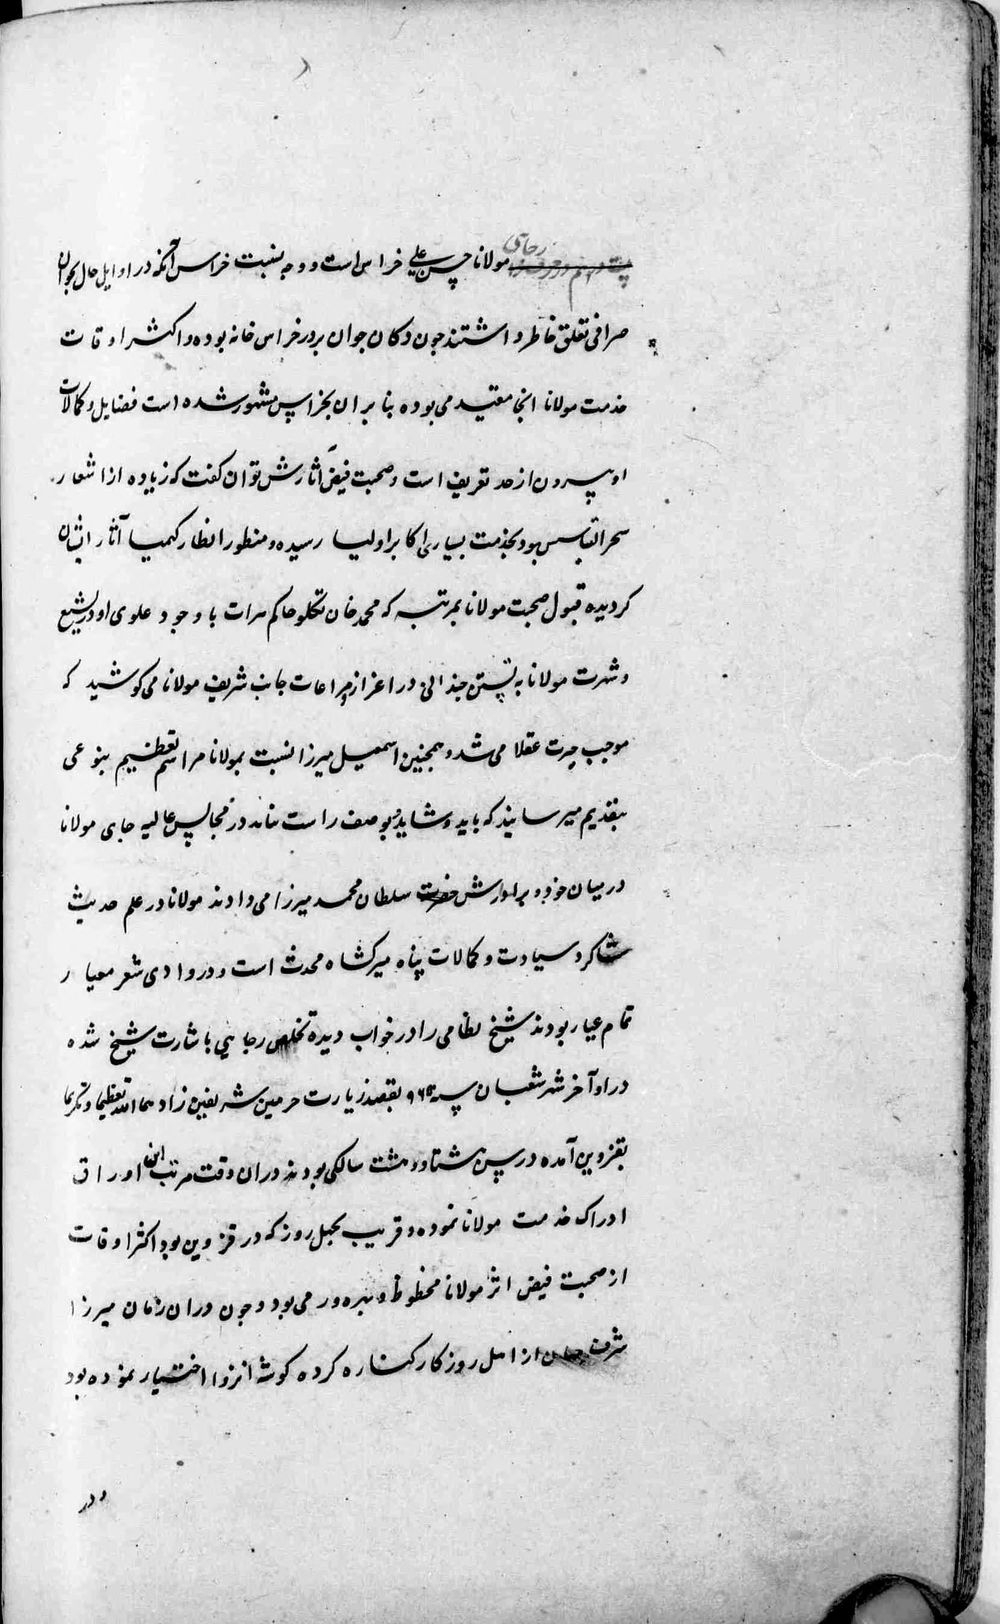 رجائی
مولانا حسن علی خراس است و وجه نسبت خراس آنکه در اوایل حال بجوان
صرافی تعلق خاطر داشتند چون دکان جوان بر در خراس خانه بوده و اکثر اوقات
خدمت مولانا انجا مقید می بوده بنا بر ان بخراس مشهور شده است فضایل و کمالات
او بیرون از حد تعریف است و صحبت فیض آثارش توان کفت که زیاده از اشعار
سحر اقتباس بود بخدمت بسیاری اکابر اولیا رسیده و منظور انظار کیمیا آثار ایشان
کردیده قبول صحبت مولانا بمرتبه که محمد خان تکلو حاکم هرات با وجود علوی او در تشیع
و شهرت مولانا به تسنن در اعزاز و مراعات جانب شریف مولانا می کوشید که
موجب حیرت عقلا می شد و همچنین اسمعیل میرزا نسبت بمولانا مراسم تعظیم بنوعی
بتقدیم میرسانید که باید و شاید بوصف راست نیاید در مجالس عالیه جای مولانا
در میان خود و برادرش حضرت سلطان محمد میرزا می دادند مولانا در علم حدیث
شاکرد سیادت و کمالات پناه میرکشاه محدث است و در وادی شعر معیار
تمام عیار بودند شیخ نظامی را در خواب دیده تخلص رجایی باشارت شیخ شده
در اوآخر شهر شعبان سنه ۹۶۵ بقصد زیارت حرمین شریفین زادهما الله تعظیما و تکریما
بقزوین آمده در سن هشتاد و هشت سالکی بودند دران وقت مرتب این اوراق
ادراک خدمت مولانا نموده و قریب بچهل روز که در قزوین بود اکثر اوقات
از صحبت فیض اثر مولانا محظوظ و بهره ور می بود و چون دران زمان میرزا
شرف جهان از اهل روزکار کناره کرده کوشه انزوا اختیار نموده بود
و در